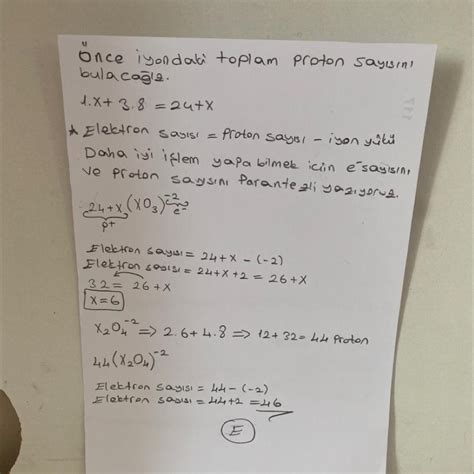 Önce iyondaki toplam proton sayısını
bulacağız.
1.x + 3.8 = 24+x
* Elektron sayısı = Proton sayısı - iyon yükü
Daha iyi işlem yapa bilmek için e⁻ sayısını
ve proton sayısını parantezli yazıyoruz.
24+x (XO₃)⁻²
p+ e⁻
Elektron sayısı = 24+x - (-2)
Elektron sayısı = 24+x+2 = 26+x
32 = 26+x
x=6
X₂O₄⁻² ⇒ 2.6 + 4.8 ⇒ 12+32 = 44 Proton
44(X₂O₄)⁻²
Elektron sayısı = 44 - (-2)
Elektron sayısı = 44+2 = 46
E